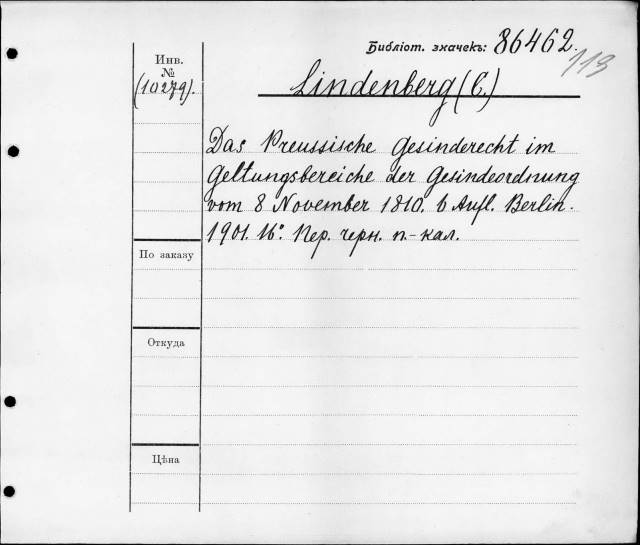 Библіот. значекъ: 86462.
113
Инв.
№
(10279).
Lindenberg (C.)
Das Preussische Gesinderecht im
Geltungsbereiche der Gesindeordnung
vom 8 November 1810. 6 Aufl. Berlin.
1901. 16°. Пер. черн. п-кал.
По заказу
Откуда
Цѣна